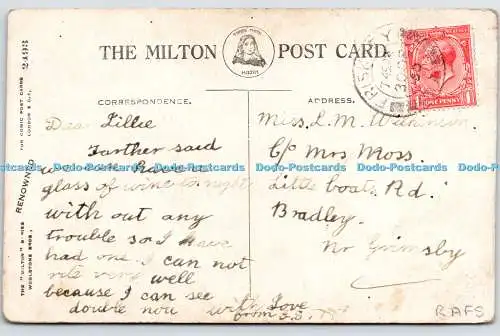 THE MILTON POST CARD.
CORRESPONDENCE.
ADDRESS.
Dear Lillie
Farther said
we can have a
glass of wine to night
with out any
trouble so I have
had one I can not
rite very well
because I can see
double now with Love
from
Miss. L. M.
C/o Mrs Moss.
Little boats Rd.
Bradley.
Nr Grimsby
ONE PENNY
RAFS
RENOWNED
FOR COMIC POST CARDS
THE "MILTON" SERIES
WOOLSTONE BROS.
Dodo-Postcards Dodo-Postcards Dodo-Postcards Dodo-Postcards Dodo-Postcards